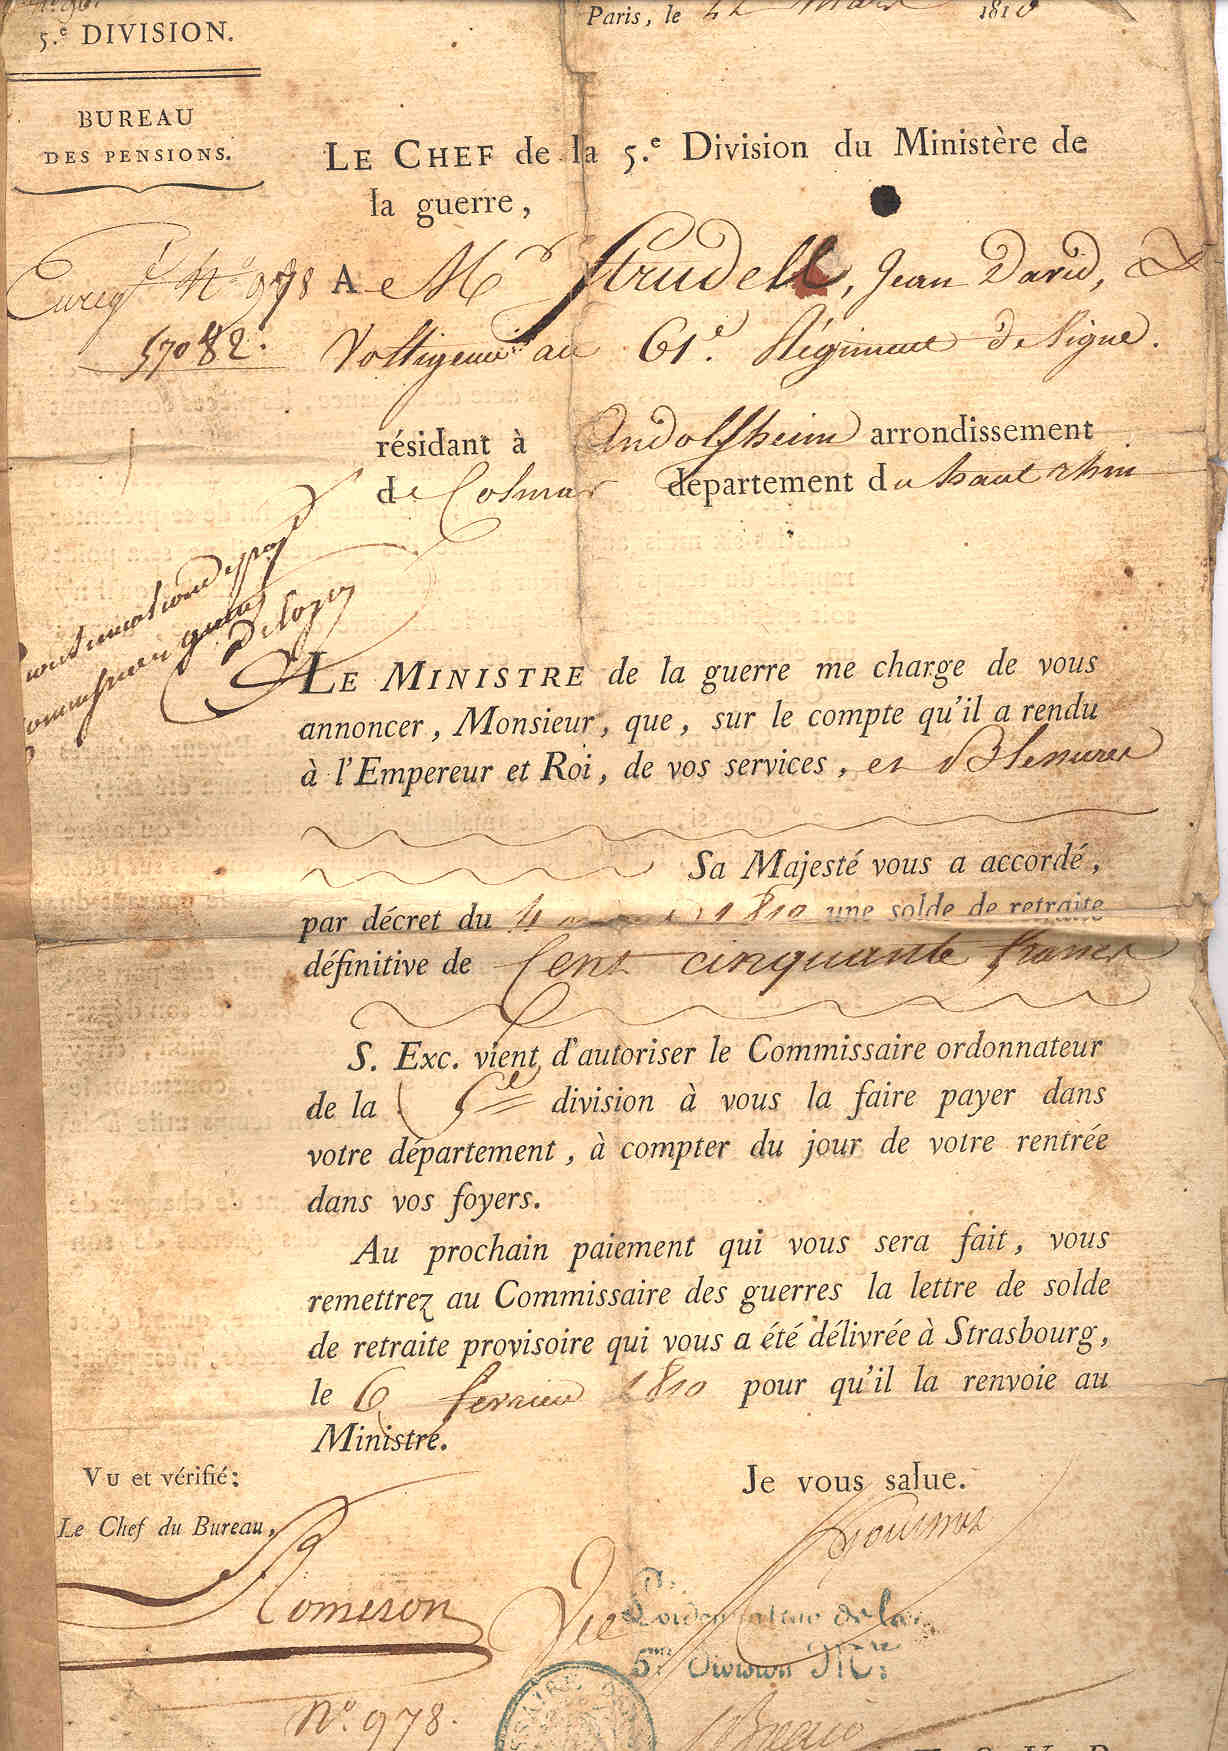 5.e DIVISION.
Paris, le 22 Mars 1810
BUREAU
DES PENSIONS.
LE CHEF de la 5.e Division du Ministère de
la guerre,
Enregt. No. 978
57082.
A Mr Strudell, Jean David,
Voltigeur au 61e. Régiment de Ligne.
résidant à Andolsheim arrondissement
de Colmar département du haut rhin
LE MINISTRE de la guerre me charge de vous
annoncer, Monsieur, que, sur le compte qu'il a rendu
à l'Empereur et Roi, de vos services, et Blessures
Sa Majesté vous a accordé,
par décret du 4 mars 1810 une solde de retraite
définitive de Cent cinquante francs
S. Exc. vient d'autoriser le Commissaire ordonnateur
de la 5e division à vous la faire payer dans
votre département, à compter du jour de votre rentrée
dans vos foyers.
Au prochain paiement qui vous sera fait, vous
remettrez au Commissaire des guerres la lettre de solde
de retraite provisoire qui vous a été délivrée à Strasbourg,
le 6 fevrier 1810 pour qu'il la renvoie au
Ministre.
VU et vérifié:
Je vous salue.
Le Chef du Bureau,
Vu
de la
5me Division Mre:
No. 978.